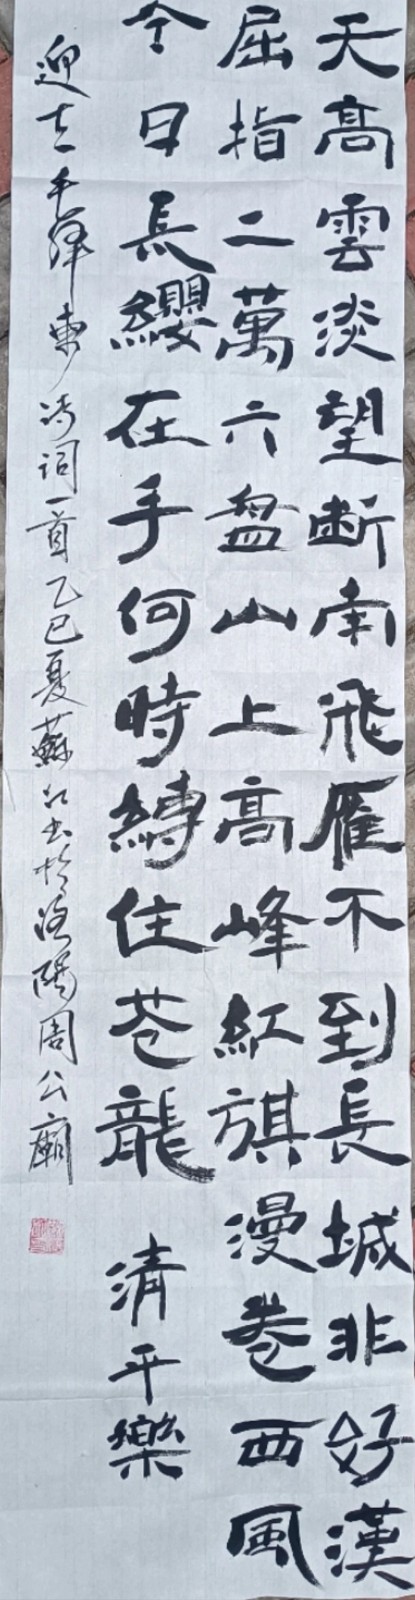 天高雲淡望断南飛雁不到長城非好漢
屈指二萬六盤山上高峰紅旗漫卷西風
今日長纓在手何時縛住苍龍 清平樂
毛泽東诗词一首乙巳夏蘇江书於洛陽周公廟